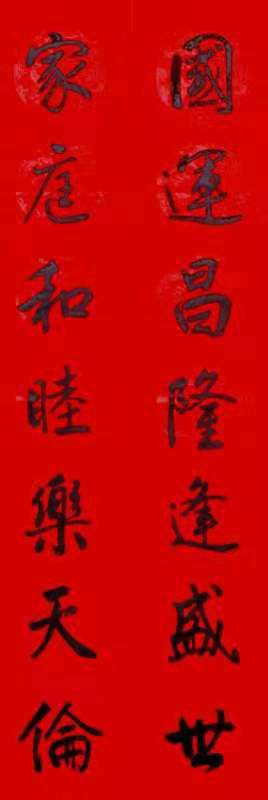 國運昌隆逢盛世
家庭和睦樂天倫